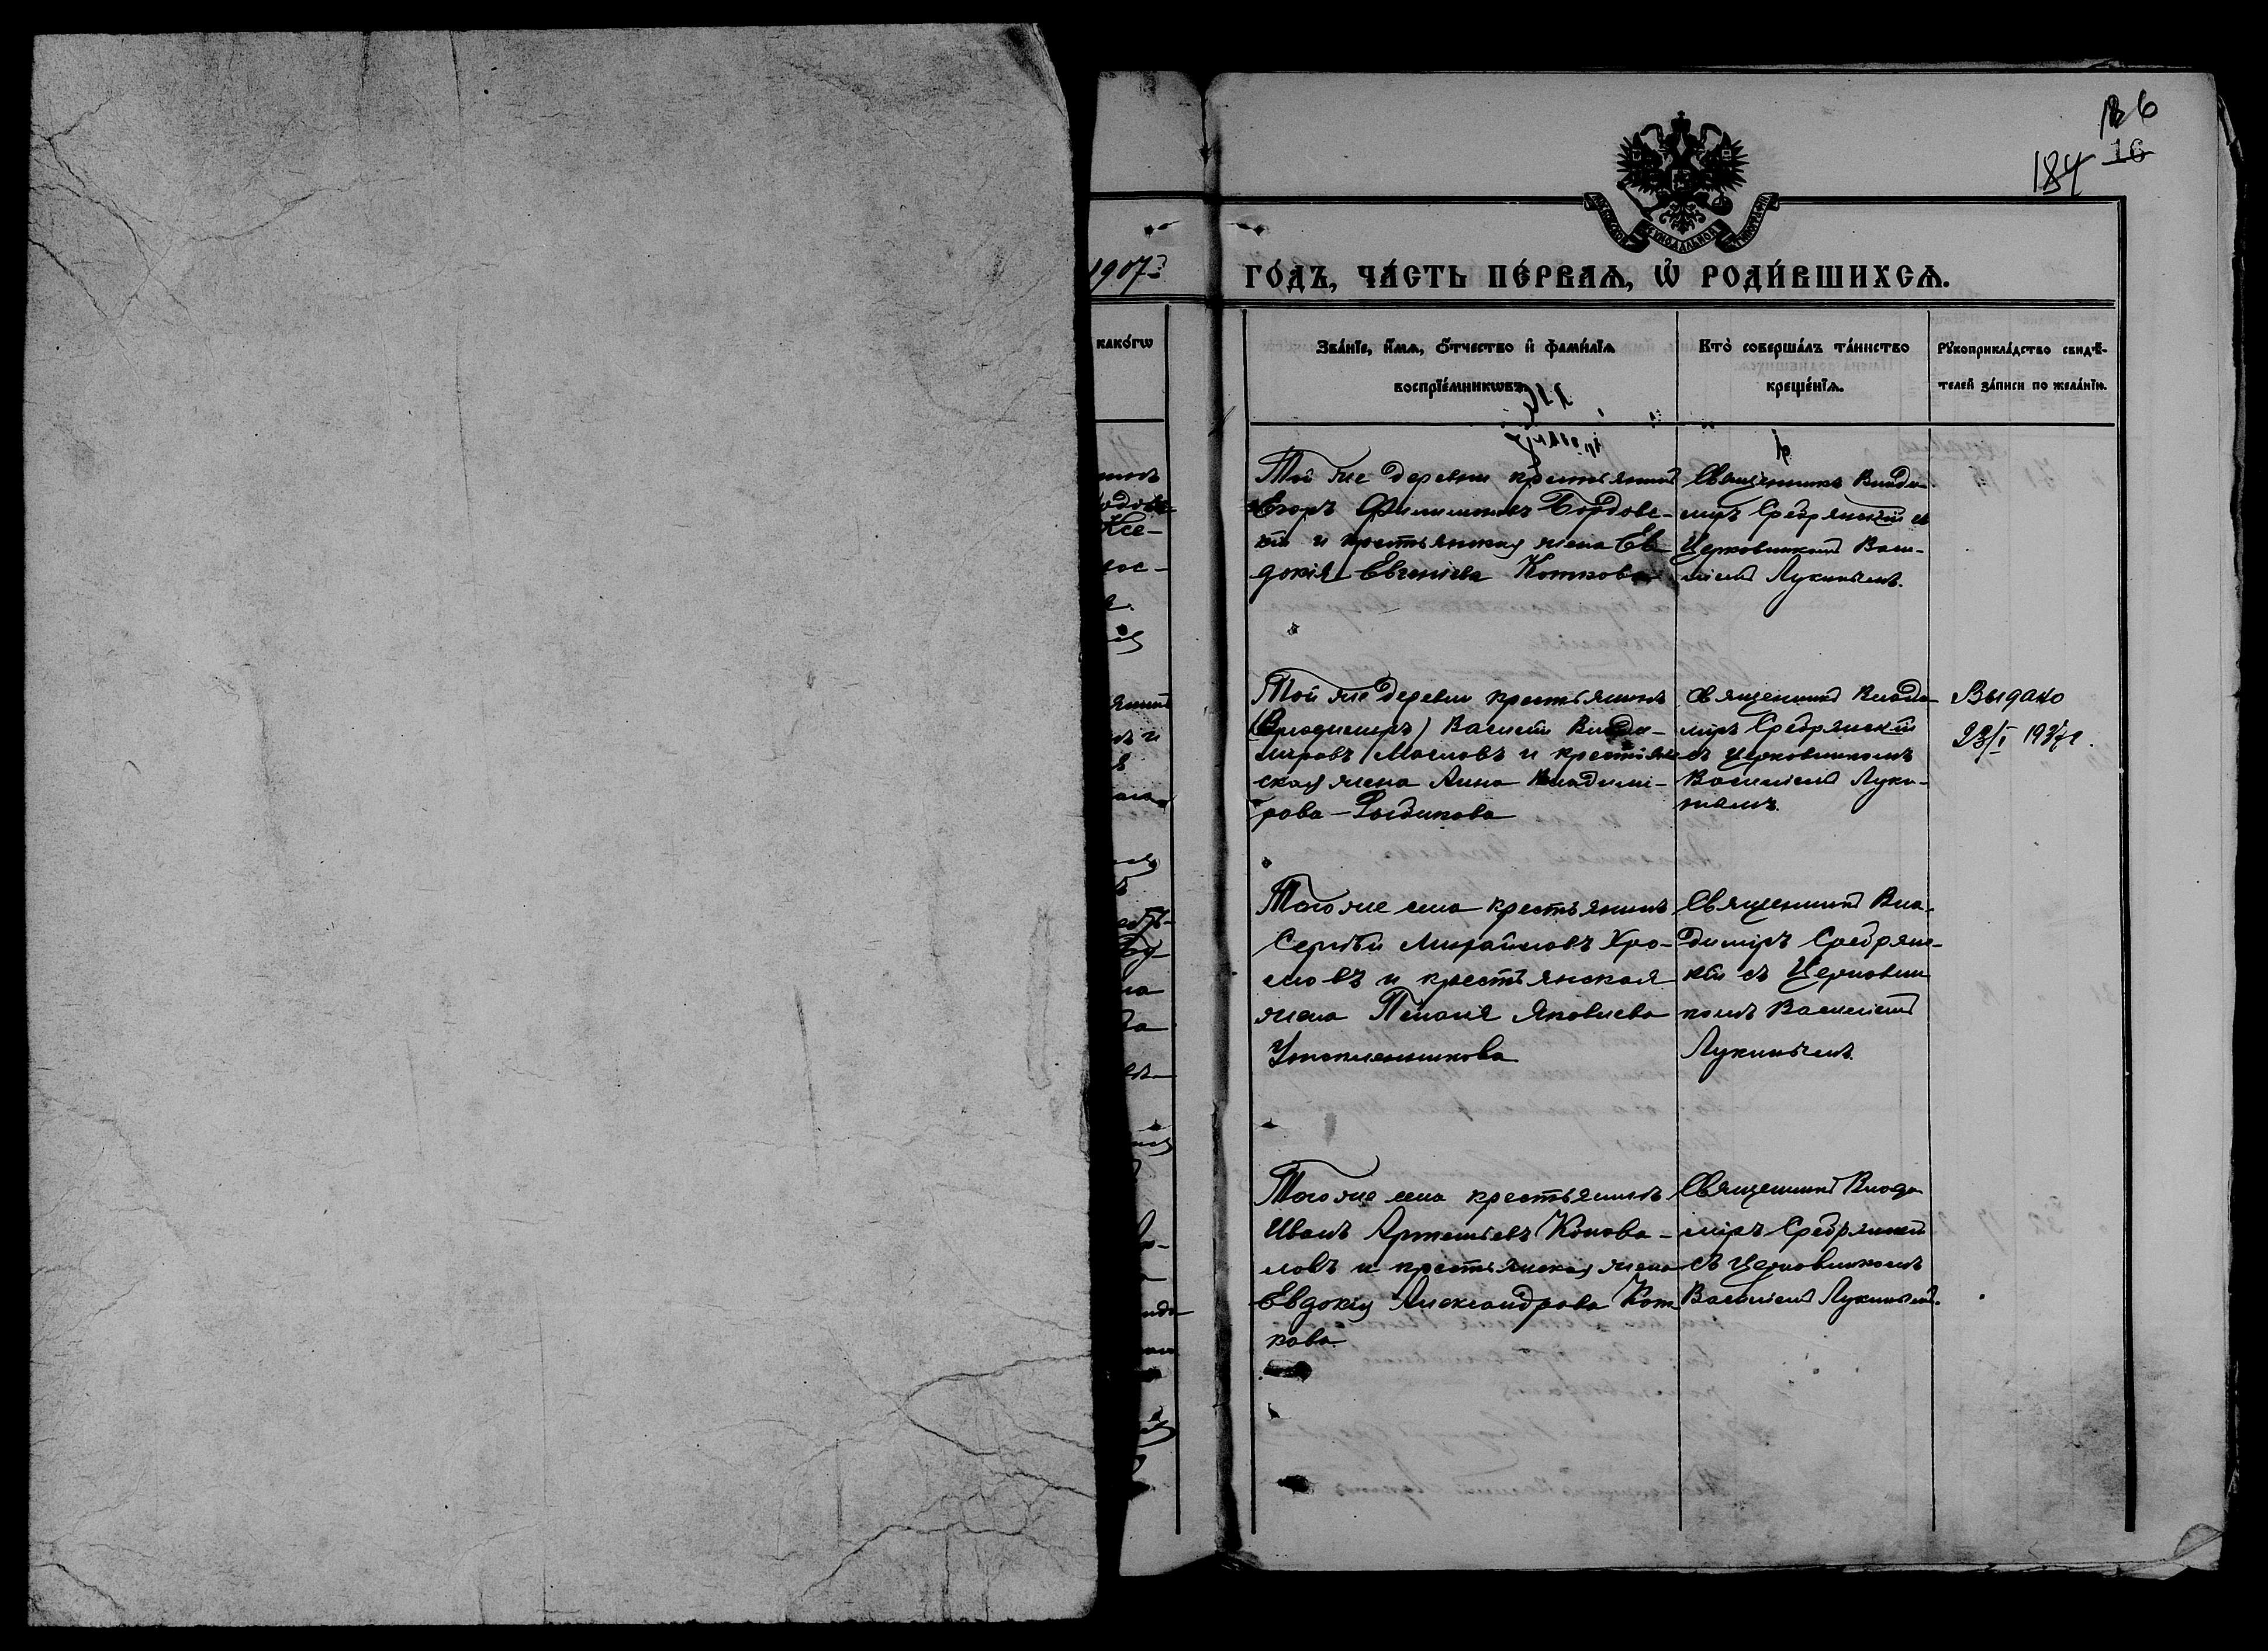 6
16
184
СИНОДАЛЬНОЙ
1907
ГО́ДЪ, ЧА́СТЬ ПЕ́РВАѦ, Ѡ҆ РОДИ́ВШИХСѦ.
како́гѡ
Зва́нїе, и҆́мѧ, ѻ҆́тчество и҆ фами́лїѧ
воспрїе́мникѡвъ.
Кто̀ соверша́лъ та́инство
креще́нїѧ.
Рꙋкоприкла́дство свидѣ́-
телей за́писи по жела́нїю.
Той же деревни крестьянинъ
Егоръ Филимоновъ Бордовс-
кій и крестьянская жена Ев
докія Евгеніева Коткова
Священникъ Влади-
міръ Сребрянскій съ
Церковникомъ Васи-
ліемъ Лукинымъ.
Той же деревни крестьянинъ
(Владимиръ) Василій Влади-
мировъ Масловъ и крестьян
ская жена Анна Владими-
рова
Священникъ Влади
міръ Сребрянскій
съ Церковникомъ
Василіемъ Луки-
нымъ.
Выдано
23/I 1937г.
Того же села крестьянинъ
Сергѣй Михайловъ Хро-
мовъ и крестьянская
жена Пелагія Яковлева
Священникъ Вла-
диміръ Сребрянс-
кій съ Церковни
комъ Василіемъ
Лукинымъ.
Того же села крестьянинъ
Иванъ Артемьевъ Конова-
ловъ и крестьянская жена
Евдокія Александрова Кот
кова
Священникъ Влади
міръ Сребрянскій
съ Церковникомъ
Василіемъ Лукинымъ.